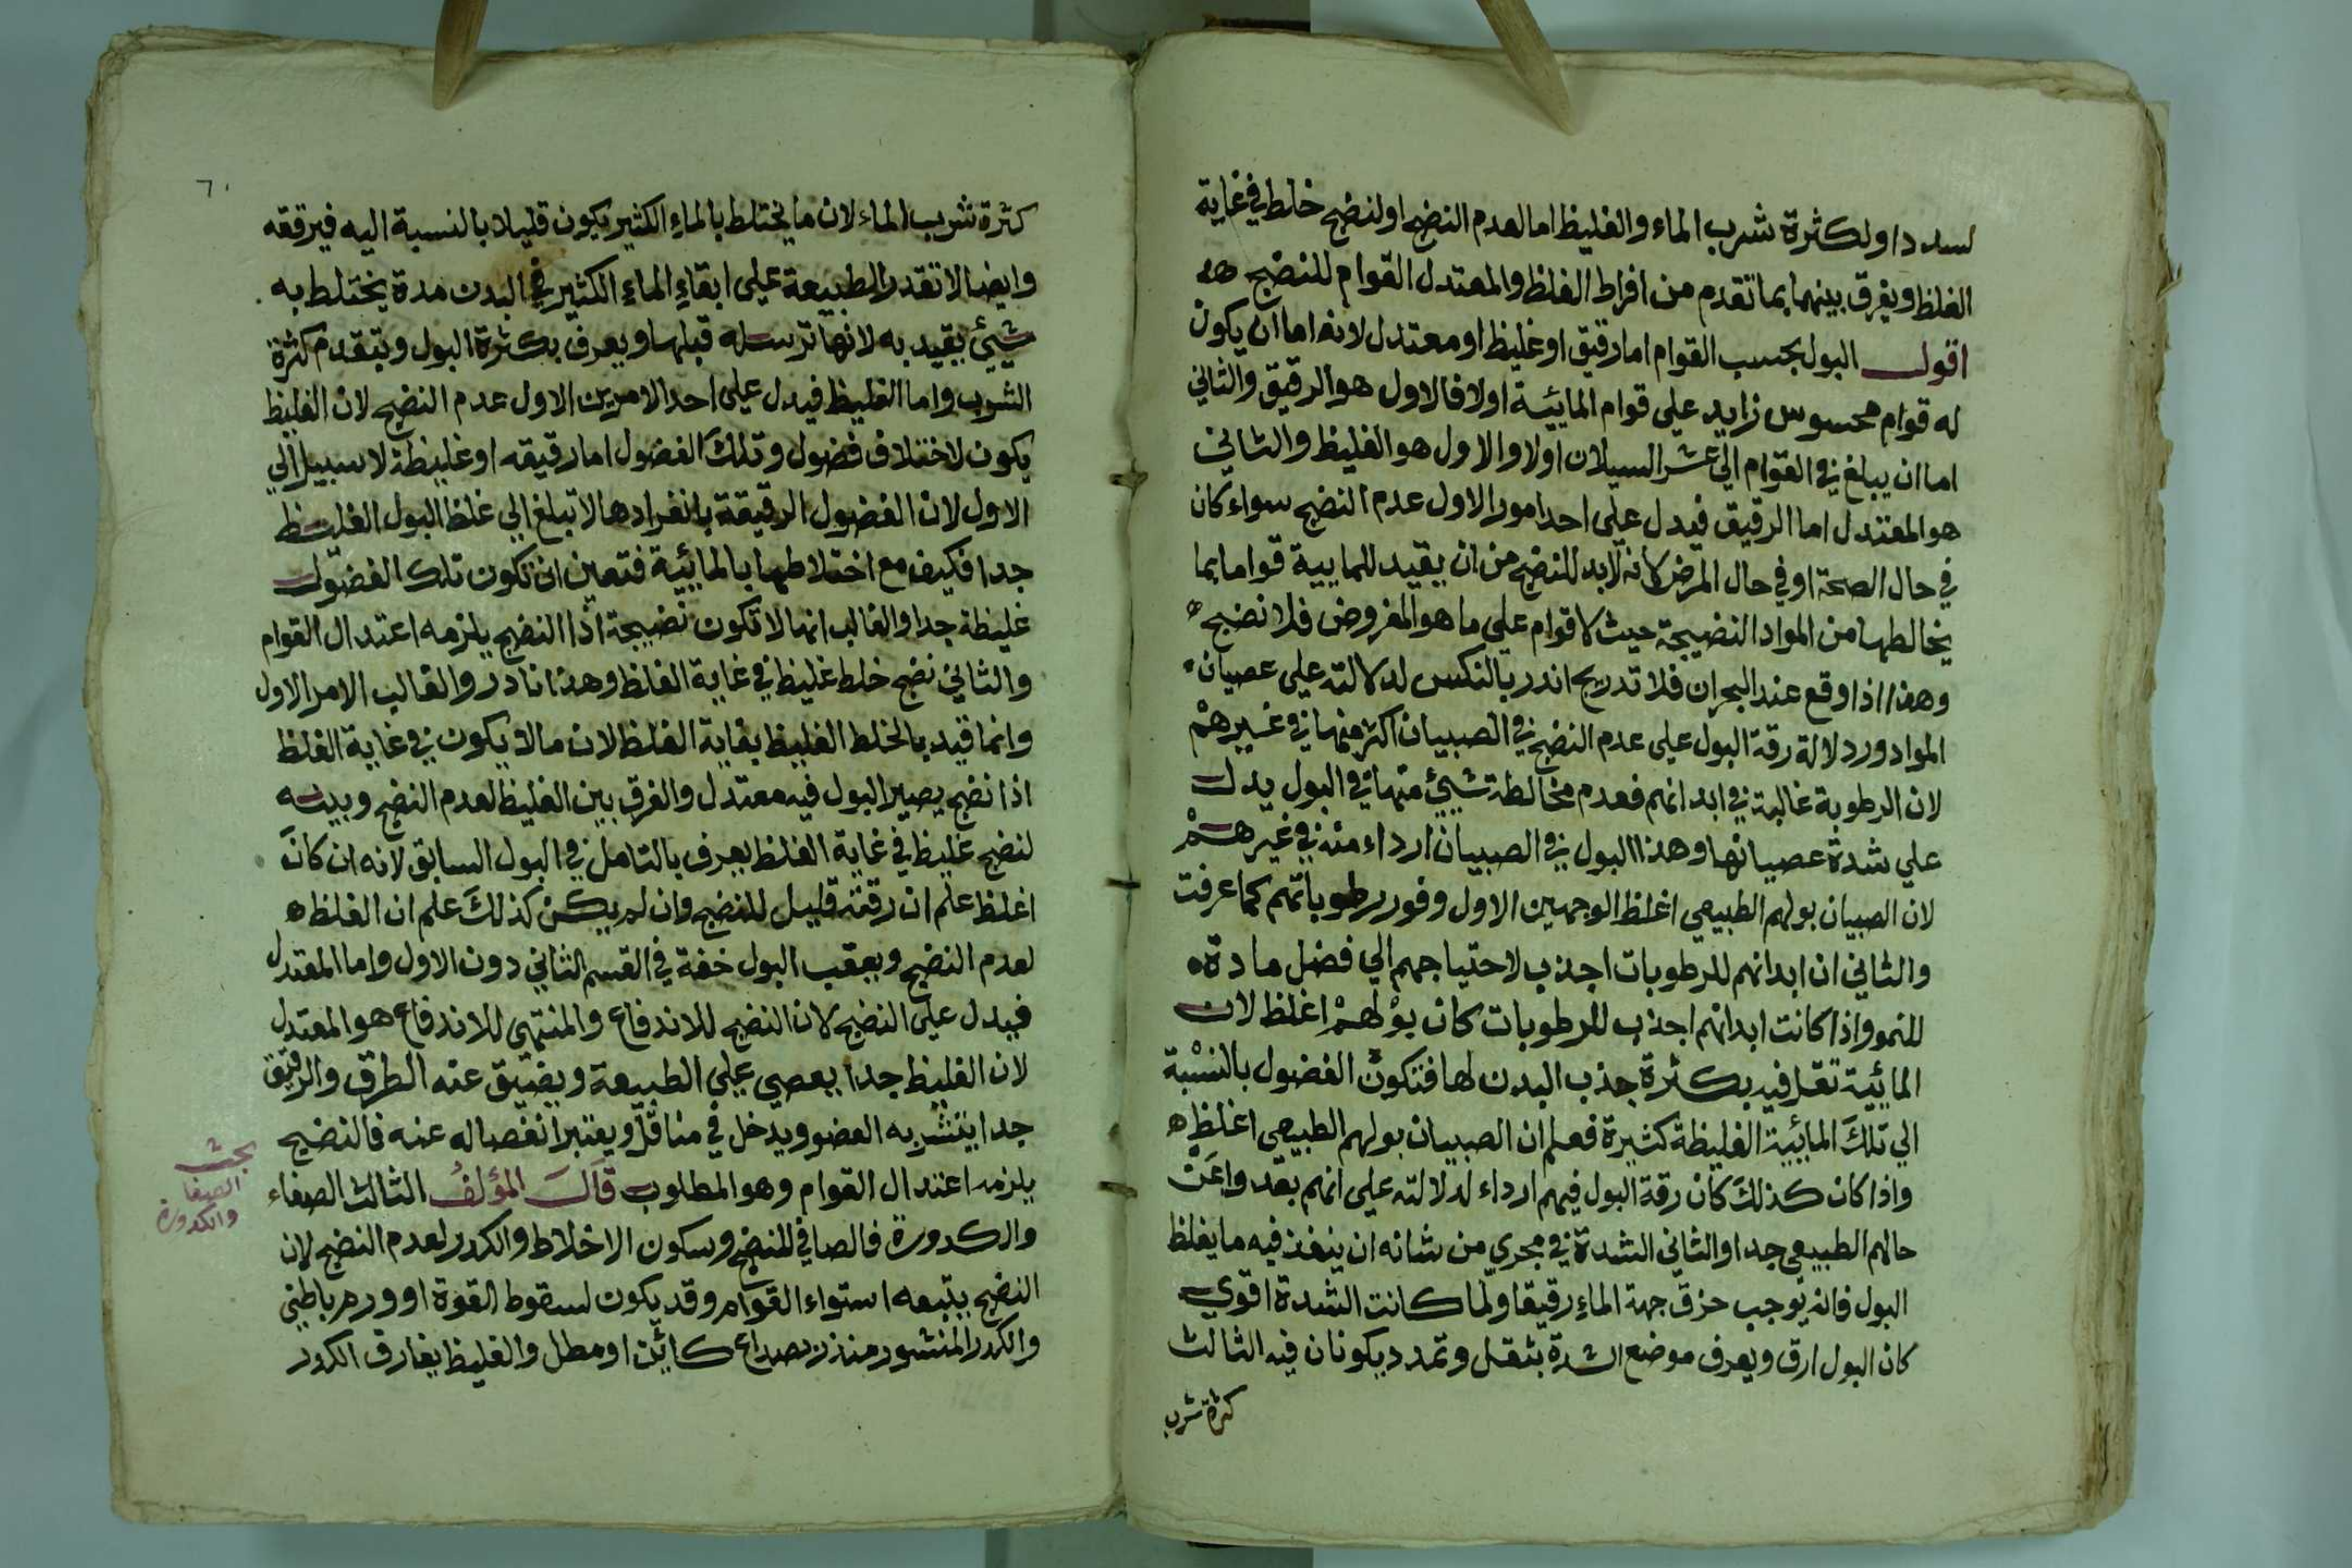 لسدد او لكثرة شرب الماء والغليظ اما لعدم النضج او لنضج خلط في غاية
الغلظ ويفرق بينهما بما تقدم من افراط الغلظ والمعتدل القوام للنضج هـ
اقول البول بحسب القوام اما رقيق او غليظ او معتدل لانه اما ان يكون
له قوام محسوس زايد على قوام المائية اولا فالاول هو الرقيق والثاني
اما ان يبلغ في القوام الي عسر السيلان اولا والاول هو الغليظ والثاني
هو المعتدل اما الرقيق فيدل على احد امور الاول عدم النضج سواء كان
في حال الصحة او في حال المرض لانه لا بد للنضج من ان يقيد للمايية قواما بما
يخالطها من المواد النضيجة حيث لا قوام على ما هو المفروض فلا نضج ه
وهذا اذا وقع عند البحران فلا تدريج انذر بالنكس لدلالته على عصيان
المواد ورد لالة رقة البول على عدم النضج في الصبيان اكثر منها في غيرهم
لان الرطوبة غالبة في ابدانهم فعدم مخالطة شيئ منها في البول يدل
علي شدة عصيانها وهذا البول في الصبيان ارداء منه في غيرهم
لان الصبيان بولهم الطبيعي اغلظ لوجهين الاول وفور رطوباتهم كما عرفت
والثاني ان ابدانهم للرطوبات اجذب لاحتياجهم الي فضل مادة
للنمو واذا كانت ابدانهم اجذب للرطوبات كان بولهم اغلظ لان
المائية تقل فيه بكثرة جذب البدن لها فتكون الفضول بالنسبة
الي تلك المائية الغليظة كثيرة فعلم ان الصبيان بولهم الطبيعي اغلظ ه
واذا كان كذلك كان رقة البول فيهم ارداء لدلالته على انهم بعدوا عن
حالهم الطبيعي جدا والثاني الشدة في مجري من شانه ان ينفذ فيه ما يغلظ
البول فانه يوجب خرق جهة الماء رقيقا ولما كانت الشدة اقوي
كان البول ارق ويعرف موضع الشدة بثقل وتمدد يكونان فيه الثالث
كثرة شرب
٦٠
كثرة شرب الماء لان ما يختلط بالماء الكثير يكون قليلا بالنسبة اليه فيرققه
وايضا لا تقدر الطبيعة على ابقاء الماء الكثير في البدن مدة يختلط به
شيئ يقيد به لانها ترسله قبلها ويعرف بكثرة البول وبتقدم كثرة
الشرب واما الغليظ فيدل على احد الامرين الاول عدم النضج لان الغليظ
يكون لاختلاف فضول وتلك الفضول اما رقيقه او غليظة لا سبيل الي
الاول لان الفضول الرقيقة بانفرادها لا تبلغ الي غلظ البول الغليظ
جدا فكيف مع اختلاطها بالمائية فتعين ان تكون تلك الفضول
غليظة جدا والغالب انها لا تكون نضيجة اذا النضج يلزمه اعتدال القوام
والثاني نضج خلط غليظ في غاية الغلظ وهذا نادر والغالب الامر الاول
وانما قيد بالخلط الغليظ بغاية الغلظ لان ما لا يكون في غاية الغلظ
اذا نضج يصير البول فيه معتدل والفرق بين الغليظ لعدم النضج وبينه
لنضج غليظ في غاية الغلظ يعرف بالتامل في البول السابق لانه ان كان
اغلظ علم ان رقته قليل للنضج وان لم يكن كذلك علم ان الغلظ ه
لعدم النضج ويعقب البول خفة في القسم الثاني دون الاول واما المعتدل
فيدل على النضج لان النضج للاندفاع والمنتهى للاندفاع هو المعتدل
لان الغليظ جدا يعصي على الطبيعة ويضيق عنه الطرق والرقيق
جدا ينتشربه العضو ويدخل في منافذ ويعتبر انفصاله عنه فالنضج
يلزمه اعتدال القوام وهو المطلوب قال المؤلف الثالث الصفاء
والكدورة فالصافي للنضج وسكون الاخلاط والكدر لعدم النضج لان
النضج يتبعه استواء القوام وقد يكون لسقوط القوة او ورم باطني
والكدر المنشور منذر بصداع كائن او مطل والغليظ يفارق الكدر
بحث
الصفا
والكدورة